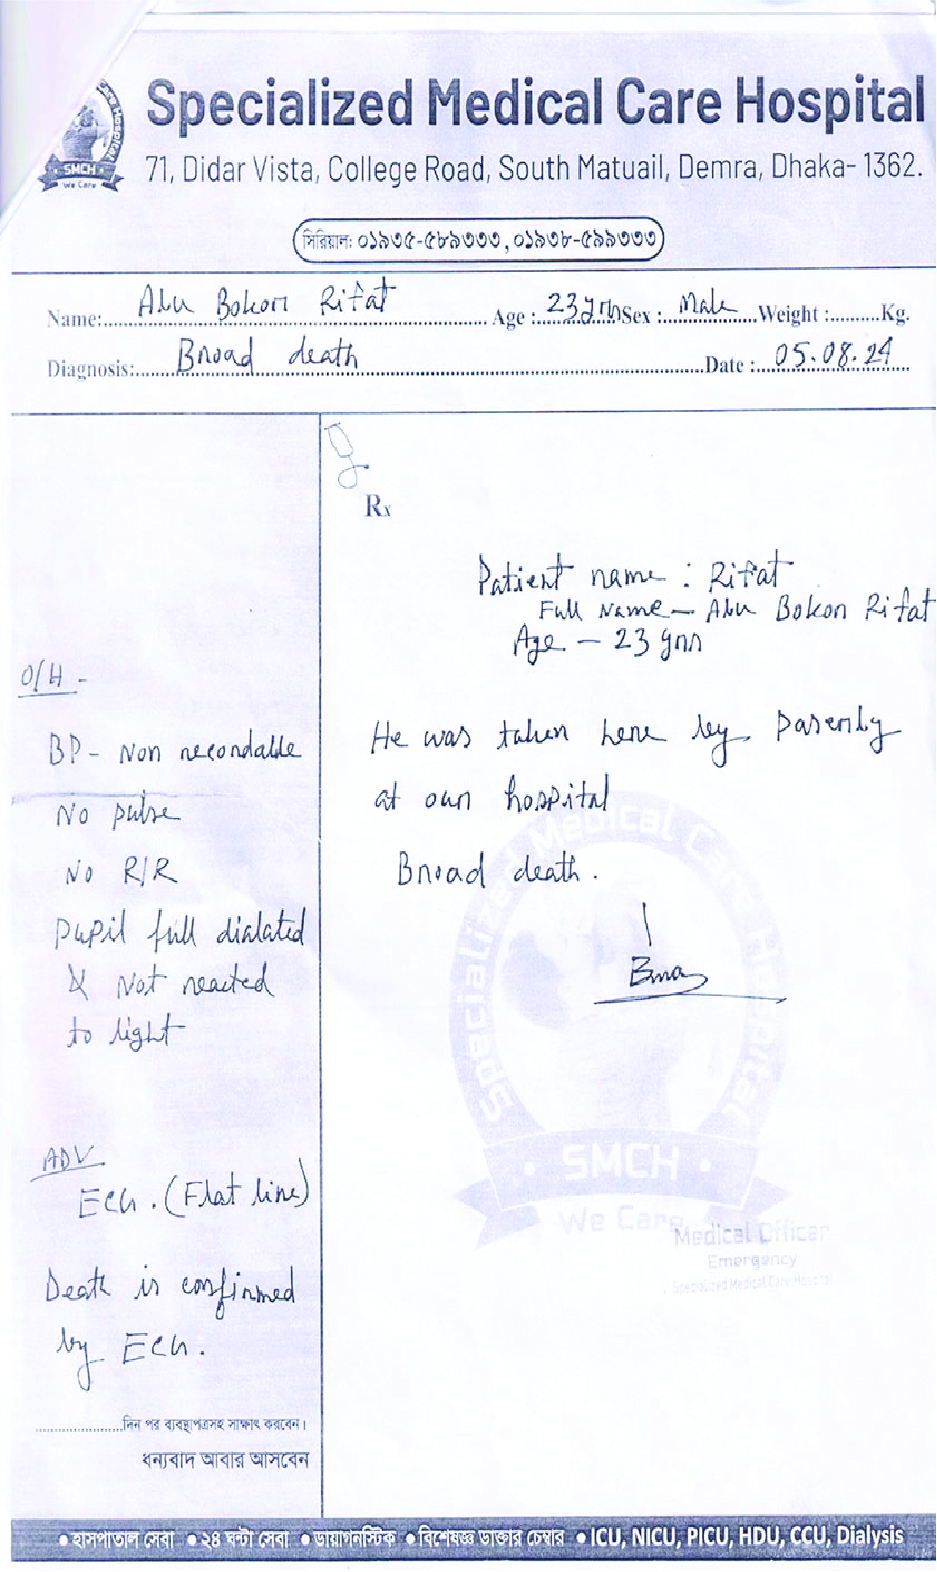 Specialized Medical Care Hospital
71, Didar Vista, College Road, South Matuail, Demra, Dhaka- 1362.
SMCH
We Care
সিরিয়াল: ০১৯৩৫-৫৮৯৩৩৩, ০১৯৩৮-৫৯৯৩৩৩
Name: Abu Bokor Rifat Age: 23 yrs Sex: Male Weight: Kg.
Diagnosis: Broad death Date: 05.08.24
Rx
Patient name : Rifat
Full Name – Abu Bokor Rifat
Age – 23 yrs
O/H -
BP - Non recordable
No pulse
No R/R
Pupil full dialated
& Not reacted
to light
ADV
ECG. (Flat line)
Death is confirmed
by ECG.
He was taken here by Paserby
at our hospital
Broad death.
Specialized Medical Care Hospital
SMCH
We Care
Medical Officer
Emergency
Specialized Medical Care Hospital
দিন পর ব্যবস্থাপত্রসহ সাক্ষাৎ করবেন।
ধন্যবাদ আবার আসবেন
• হাসপাতাল সেবা • ২৪ ঘন্টা সেবা • ডায়াগনস্টিক • বিশেষজ্ঞ ডাক্তার চেম্বার • ICU, NICU, PICU, HDU, CCU, Dialysis